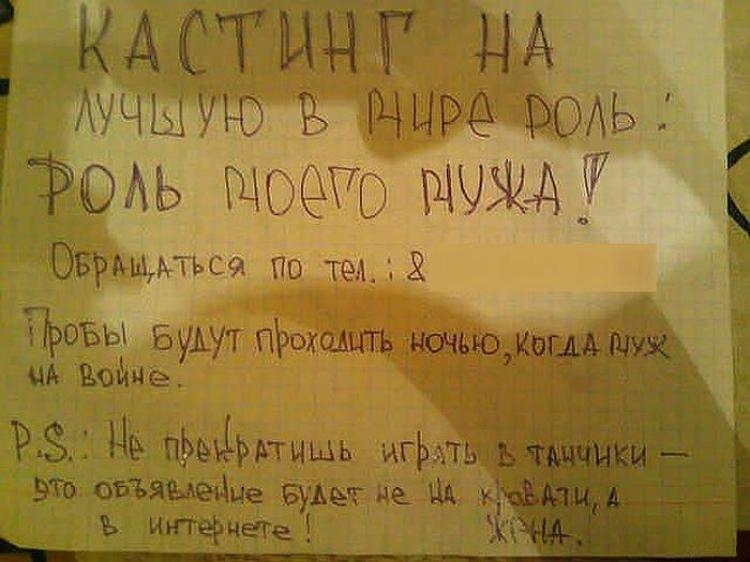 КАСТИНГ НА
ЛУЧШУЮ В МИРЕ РОЛЬ:
РОЛЬ МОЕГО МУЖА!
ОБРАЩАТЬСЯ ПО ТЕЛ.: 8
ПРОБЫ БУДУТ ПРОХОДИТЬ НОЧЬЮ, КОГДА МУЖ
НА ВОЙНЕ.
P.S.: НЕ ПРЕКРАТИШЬ ИГРАТЬ В ТАНЧИКИ —
ЭТО ОБЪЯВЛЕНИЕ БУДЕТ НЕ НА КРОВАТИ, А
В ИНТЕРНЕТЕ! ЖЕНА.